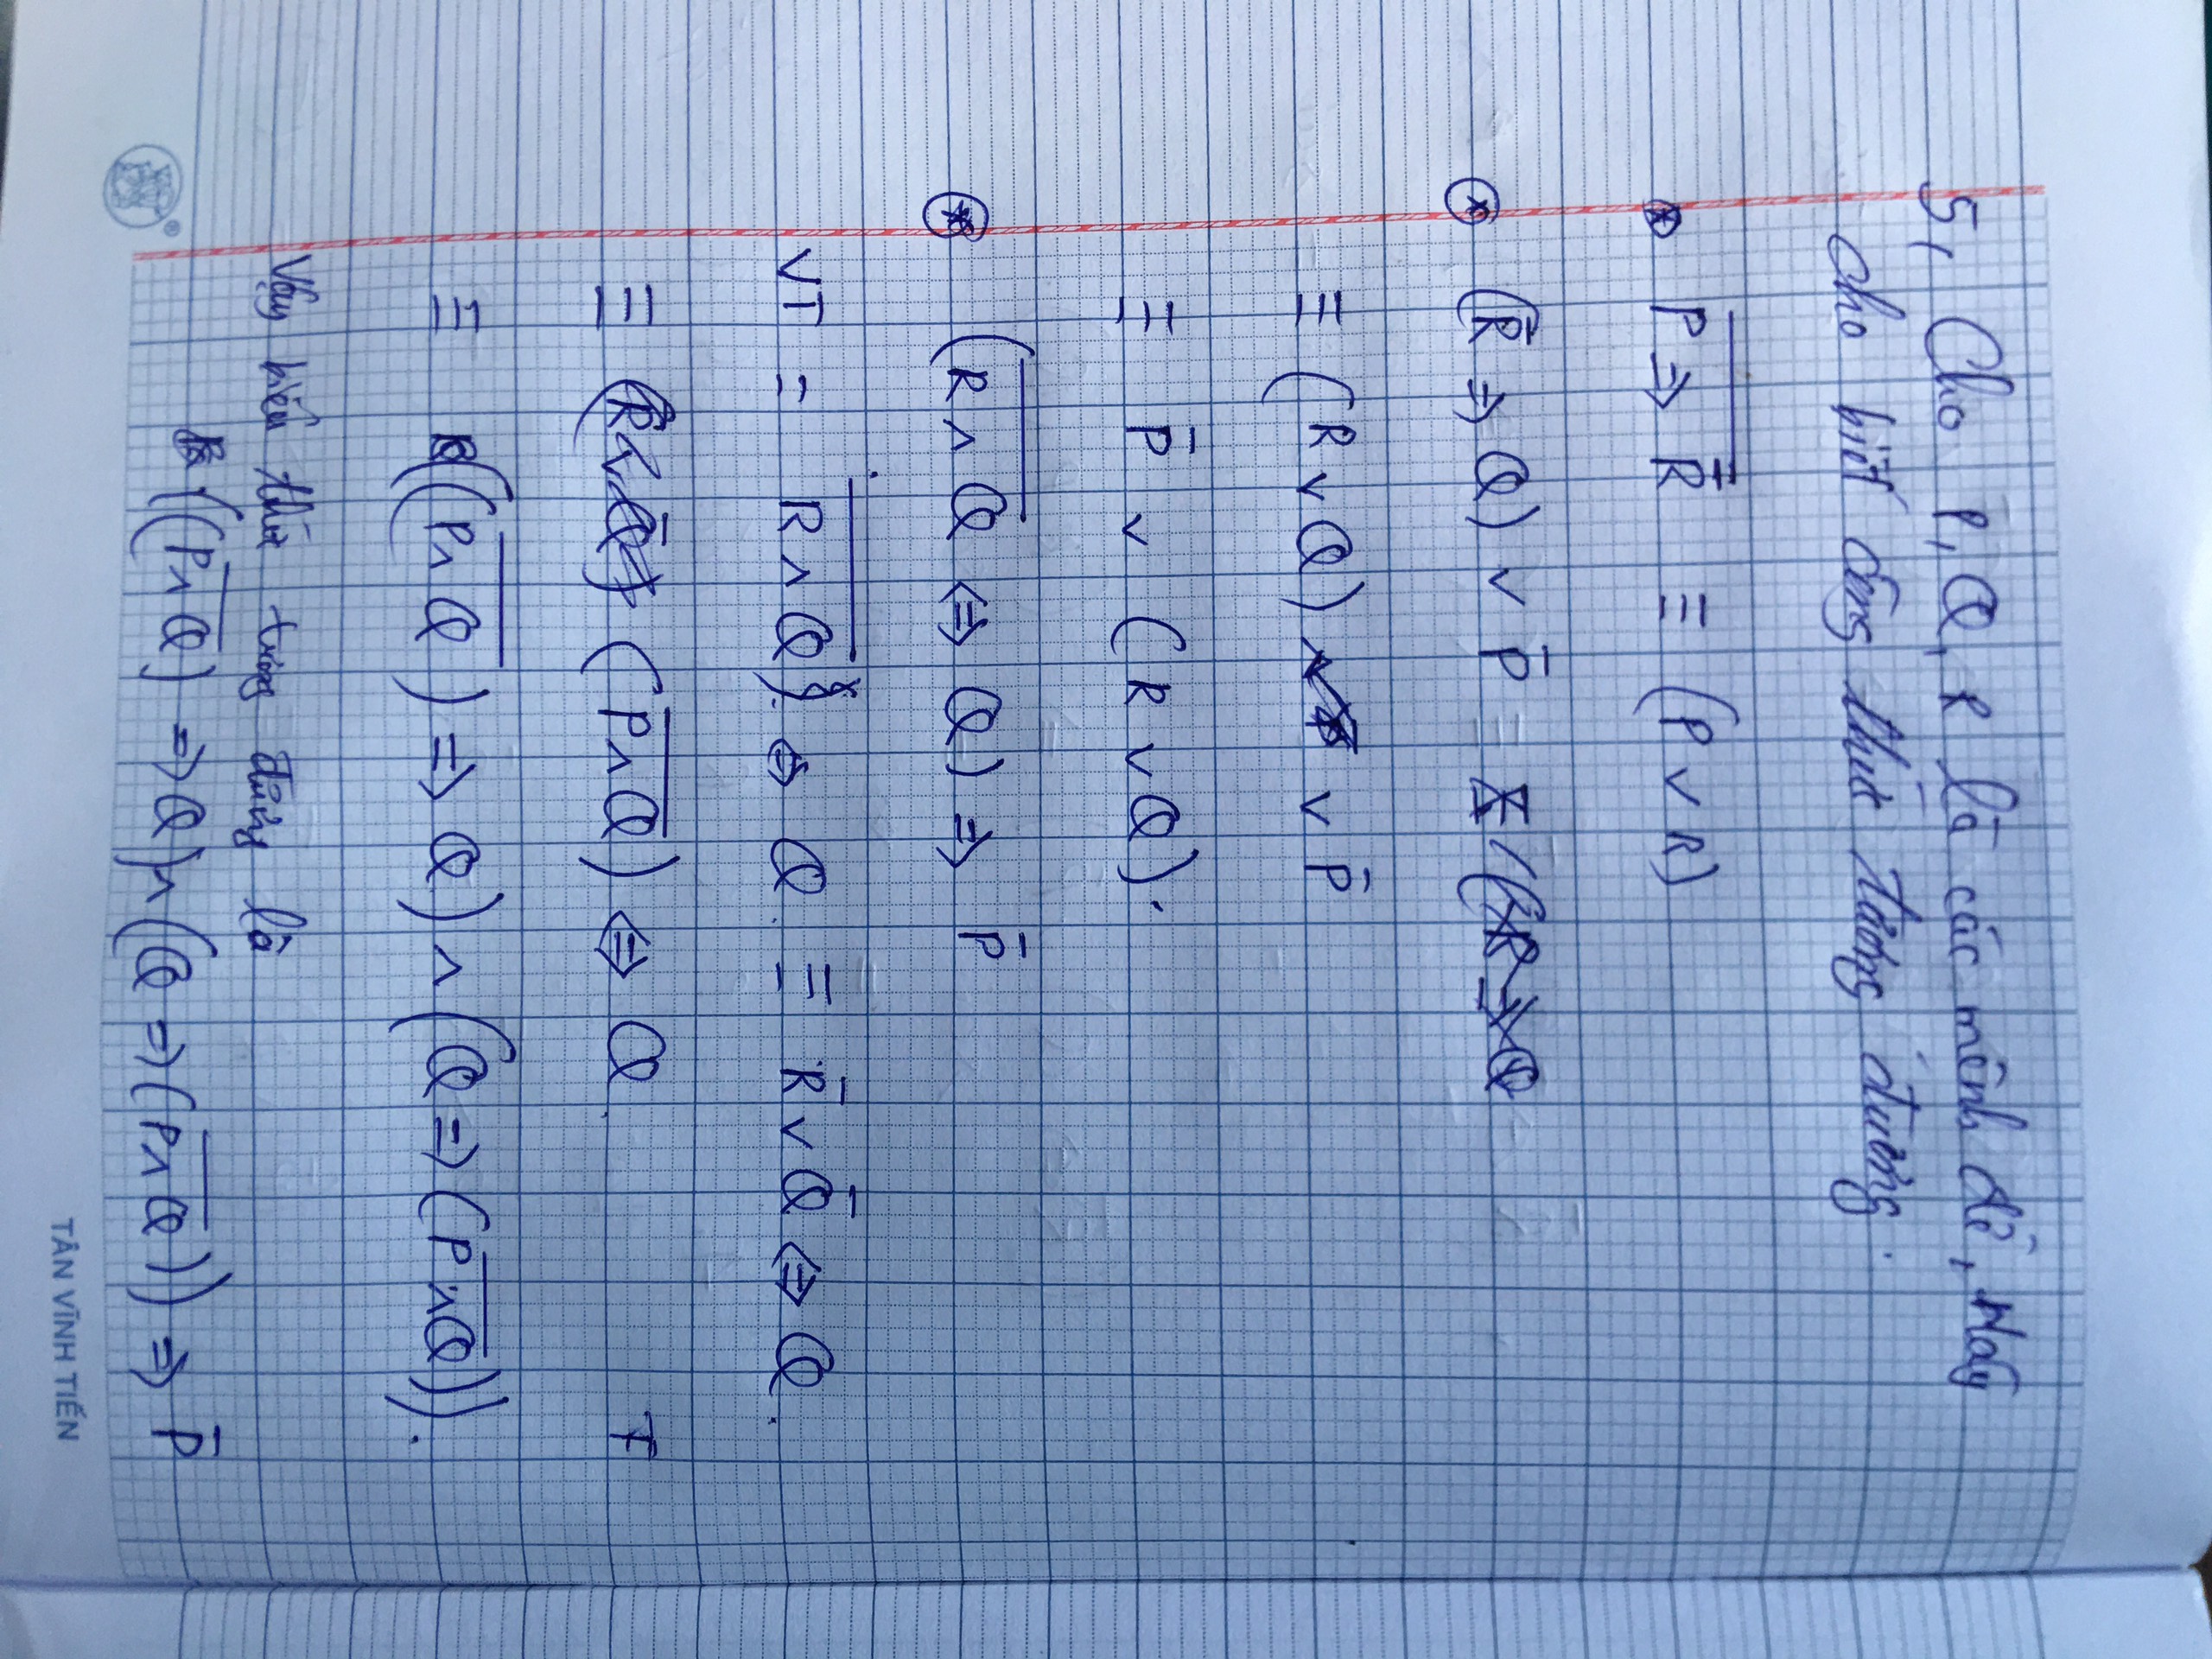 5, Cho P, Q, R là các mệnh đề, Hãy
cho biết công thức tương đương.
⊛ \overline{P ⇒ \bar{R}} ≡ (P ∨ R)
⊛ (\bar{R} ⇒ Q) ∨ \bar{P}
≡ (R ∨ Q) ∨ \bar{P}
≡ \bar{P} ∨ (R ∨ Q).
⊛ (\overline{R ∧ Q} ⇔ Q) ⇒ \bar{P}
VT = \overline{R ∧ Q} ⇔ Q ≡ \bar{R} ∨ \bar{Q} ⇔ Q.
≡ (\overline{P ∧ Q}) ⇔ Q
≡ ((\overline{P ∧ Q}) ⇒ Q) ∧ (Q ⇒ (\overline{P ∧ Q})).
Vậy biểu thức tương đương là
((\overline{P ∧ Q}) ⇒ Q) ∧ (Q ⇒ (\overline{P ∧ Q})) ⇒ \bar{P}
TÂN VĨNH TIẾN